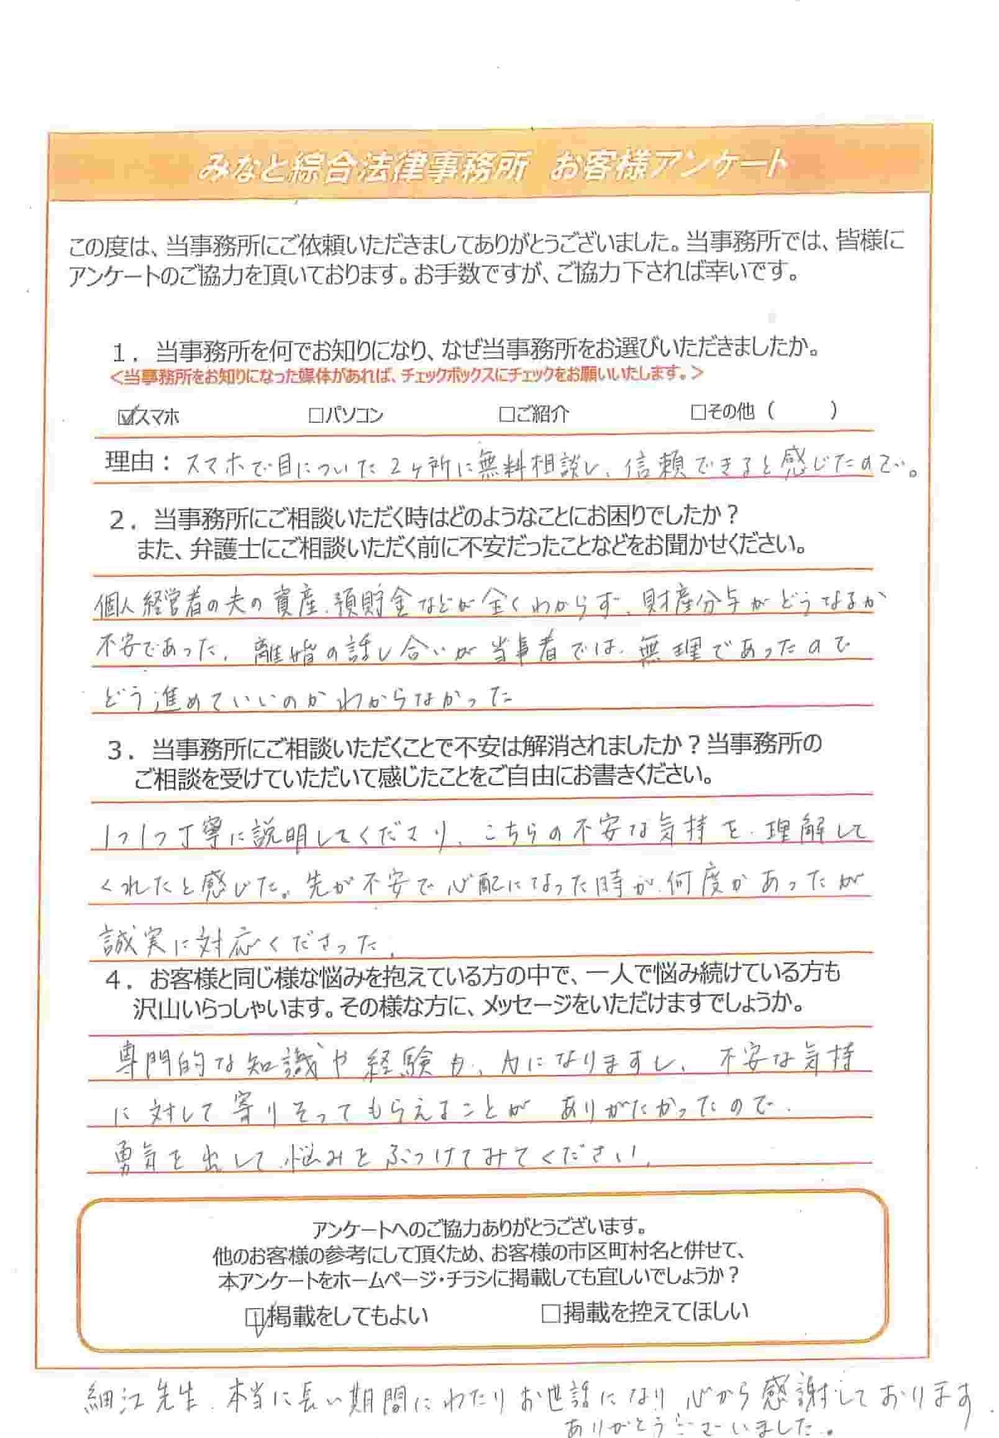 みなと綜合法律事務所 お客様アンケート
この度は、当事務所にご依頼いただきましてありがとうございました。当事務所では、皆様に
アンケートのご協力を頂いております。お手数ですが、ご協力下されば幸いです。
1．当事務所を何でお知りになり、なぜ当事務所をお選びいただきましたか。
＜当事務所をお知りになった媒体があれば、チェックボックスにチェックをお願いいたします。＞
☑スマホ □パソコン □ご紹介 □その他（　　）
理由：スマホで目についた2ヶ所に無料相談し、信頼できると感じたので。
2．当事務所にご相談いただく時はどのようなことにお困りでしたか？
また、弁護士にご相談いただく前に不安だったことなどをお聞かせください。
個人経営者の夫の資産、預貯金などが全くわからず、財産分与がどうなるか
不安であった。離婚の話し合いが当事者では、無理であったので
どう進めていいのかわからなかった
3．当事務所にご相談いただくことで不安は解消されましたか？当事務所の
ご相談を受けていただいて感じたことをご自由にお書きください。
1つ1つ丁寧に説明してくださり、こちらの不安な気持を、理解して
くれたと感じた。先が不安で心配になった時が、何度かあったが
誠実に対応くださった。
4．お客様と同じ様な悩みを抱えている方の中で、一人で悩み続けている方も
沢山いらっしゃいます。その様な方に、メッセージをいただけますでしょうか。
専門的な知識や経験が、力になりますし、不安な気持
に対して寄りそってもらえることが ありがたかったので、
勇気を出して、悩みをぶつけてみてください。
アンケートへのご協力ありがとうございます。
他のお客様の参考にして頂くため、お客様の市区町村名と併せて、
本アンケートをホームページ・チラシに掲載しても宜しいでしょうか？
☑掲載をしてもよい □掲載を控えてほしい
細江先生、本当に長い期間にわたりお世話になり 心から感謝しております。
ありがとうございました。